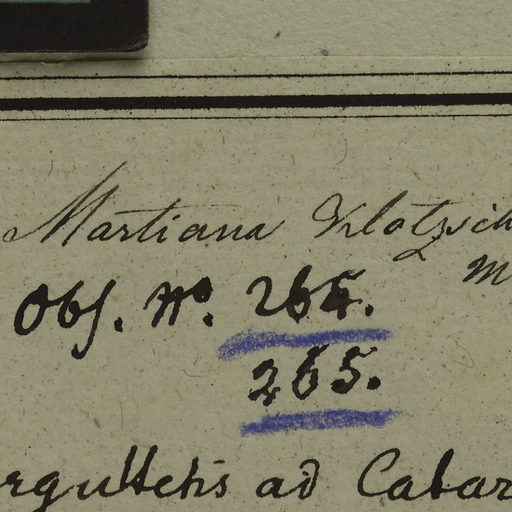 Martiana Klotzsch
M
Obs. No. 264.
265.
rguttetis ad Cabar